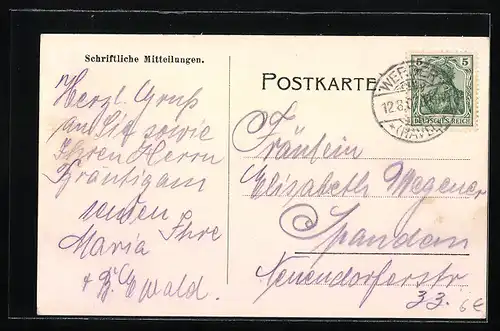 Schriftliche Mitteilungen.
POSTKARTE.
Herzl. Gruß
an Sie sowie
Ihren Herrn
Bräutigam
senden Ihre
Maria
+ B. Ewald.
5 5
DEUTSCHES REICH
WERDER
12.8.
(HAVEL)
Fräulein
Elisabeth Wegener
Spandau
Neuendorferstr
33.
6€